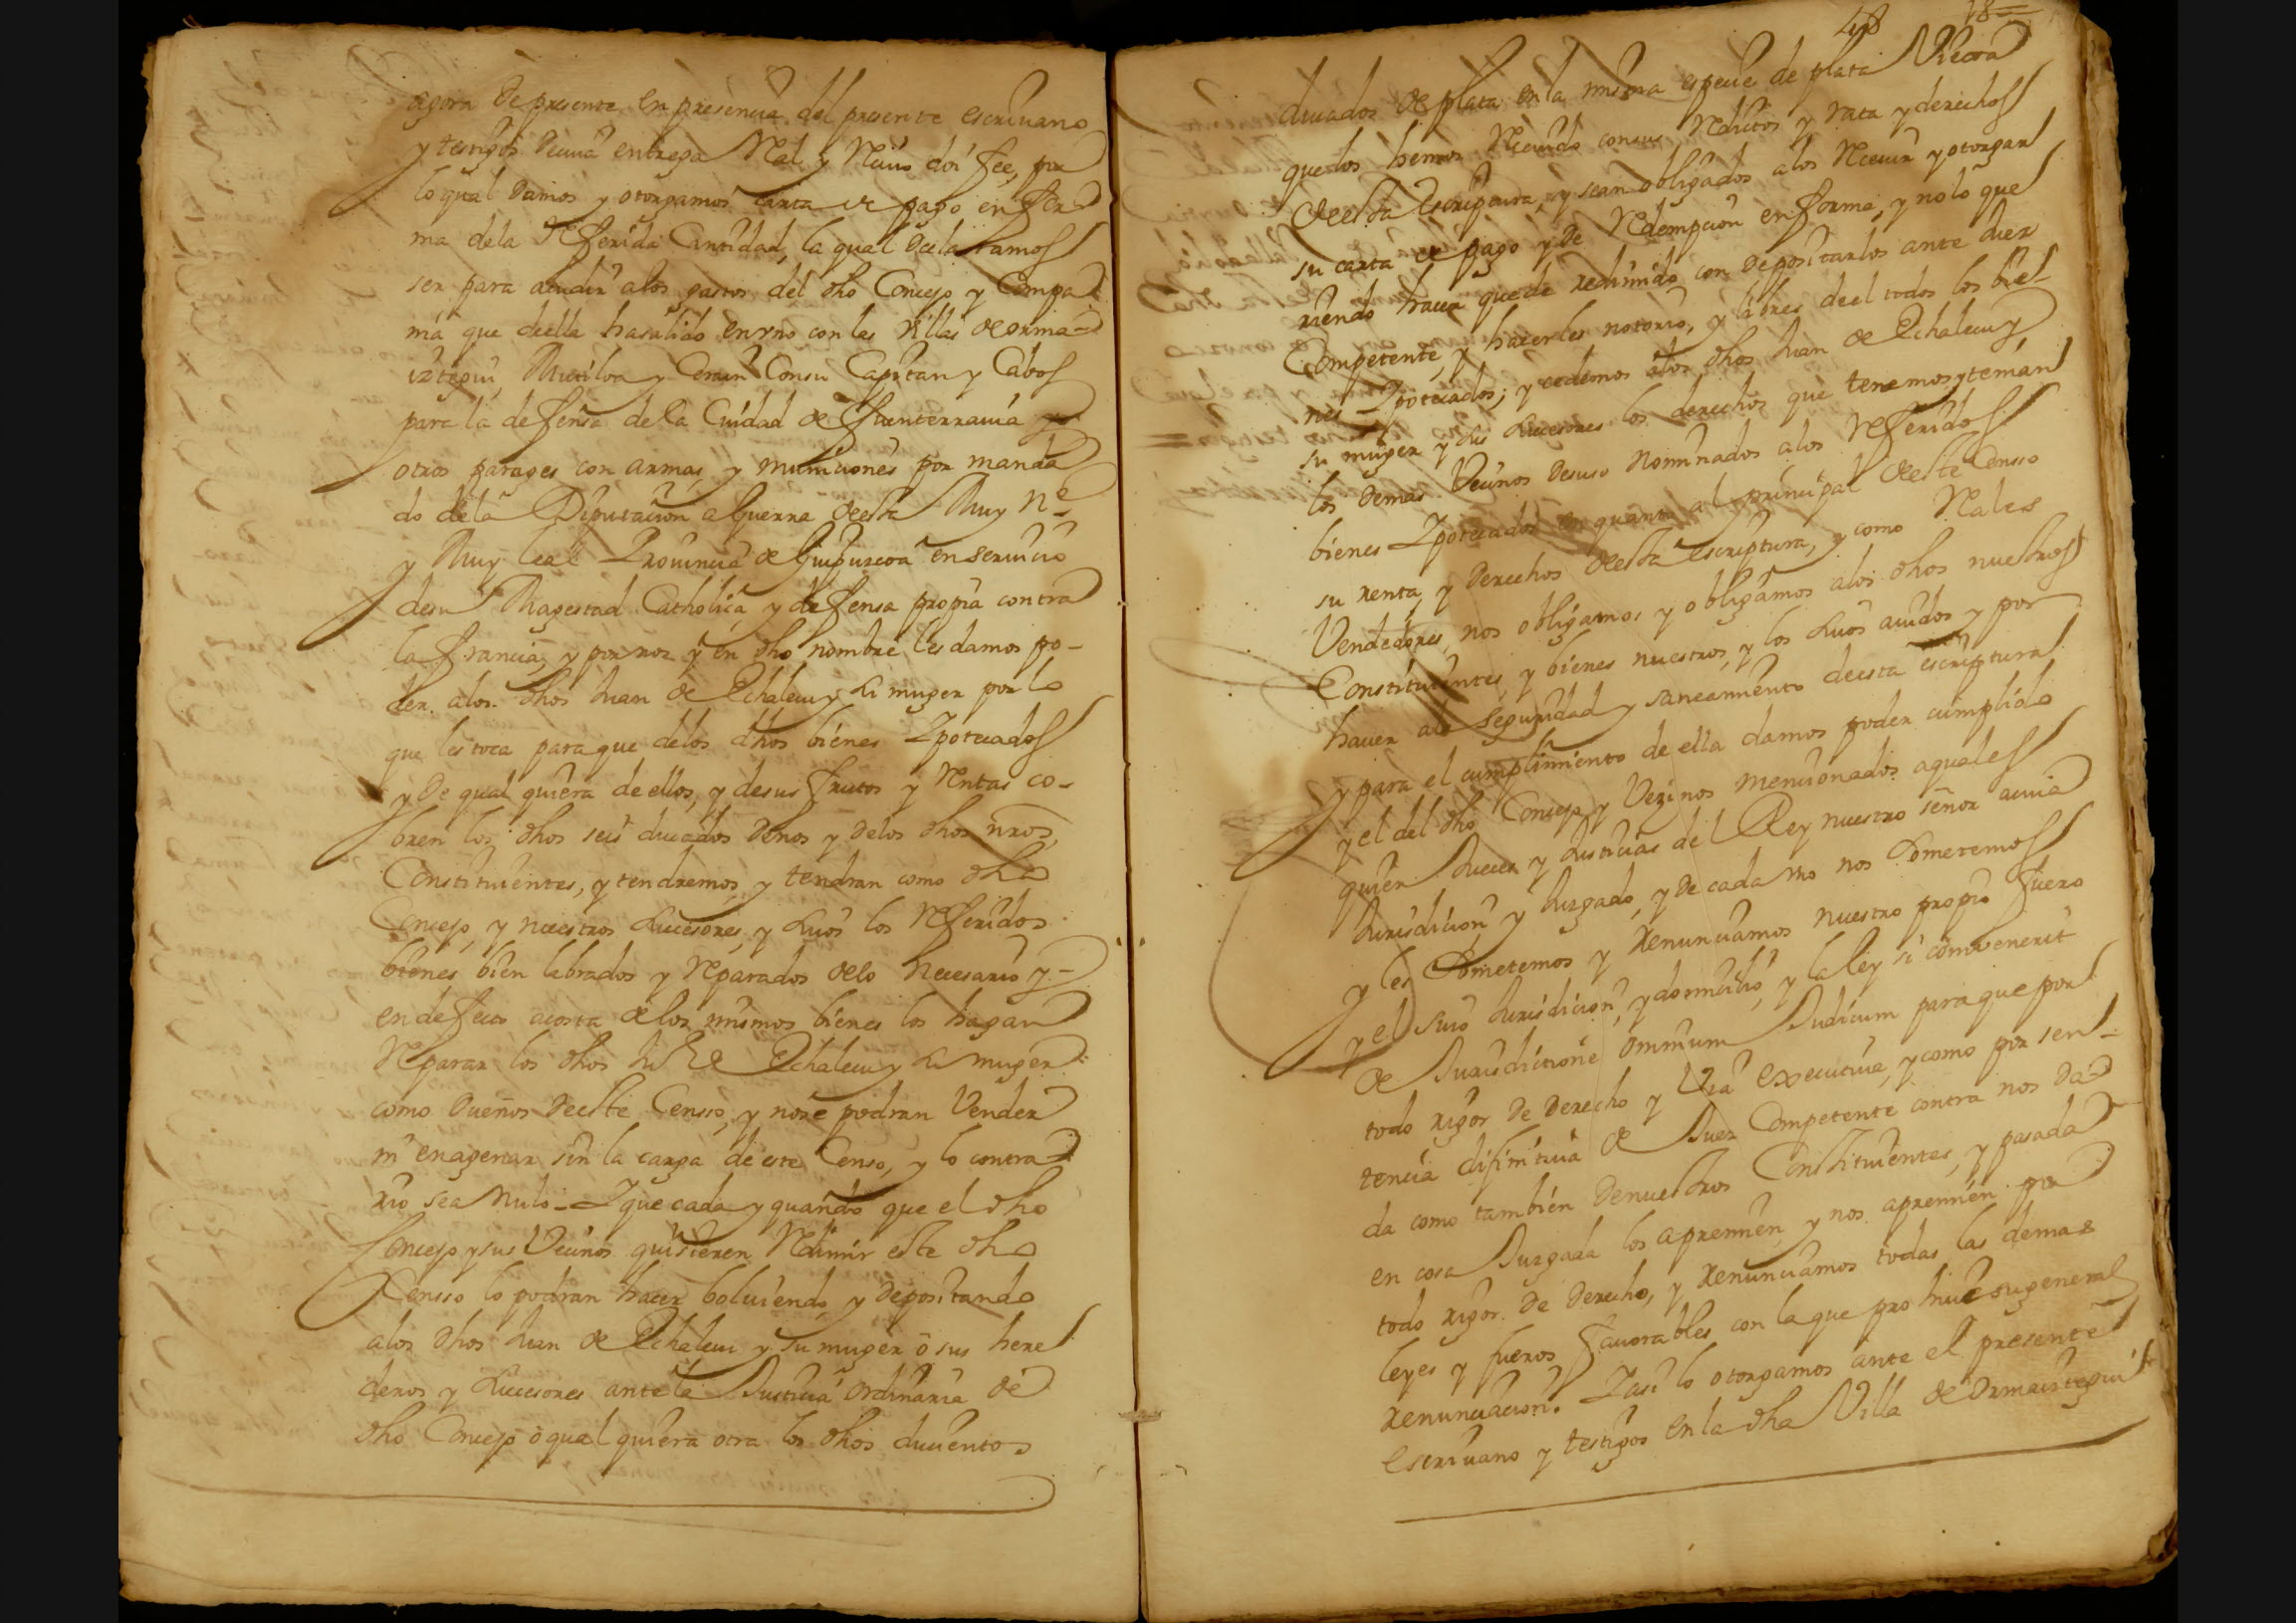 agora de presente en presencia del presente escriuano
y testigos de cuia entrega Real y Reciuo doi fee, por
lo qual damos y otorgamos carta de pago en for
ma dela Referida Cantidad, la qual declaramos
ser para acudir alos gastos del dho Concejo y Compa
nia que de ella ha salido en vno con las Villas de orma-
iztegui, Mutiloa y Cerain Con su Capitan y Cabos
para la defensa de la Ciudad de fuenterrauia y
otros parages con armas, y municiones por manda
do dela Diputacion a Guerra de esta Muy Ne.
y Muy leal Prouincia de Guipuzcoa en seruicio
de su Magestad Catholica y defensa propia contra
la francia, y por nos y en dho nombre les damos po-
der alos dhos Juan de Echalecu y su muger por lo
que les toca para que delos dhos bienes Ipotecados
y de qual quiera de ellos, y de sus frutos y Rentas co-
bren los dhos seis ducados de nos y delos dhos nros
Constituientes, y tendremos, y tendran como dho
Concejo, y nuestros sucesores, y suios los Referidos
bienes bien labrados y Reparados delo necesario y-
en defecto acosta delos mismos bienes los hagan
Reparar los dhos Ju de Echalecu y su muger
como dueños de este Censso, y no se podran Vender
ni enagenar sin la carga de este Censo, y lo contra
rio sea nulo- I que cada y quando que el dho
Concejo y sus Vecinos quisieren Redimir este dho
Censso lo podran hacer boluiendo, y depositando
alos dhos Juan de Echalecu y su muger o sus here
deros y sucesores ante la Justicia ordinaria de
dho Concejo o qual quiera otra los dhos ducientos
48 48
ducados de plata en la misma especie de plata
que los hemos Reciuido con sus Reditos y rata y derechos
de esta Escriptura, y sean obligados alos Reciuir y otorgar
su carta de pago y de Redempcion en forma, y no lo que
riendo hacer quede redimido con depositarlos ante Juez
Competente, y hacerles notorio, y libres de el todos los bie
nes Ipotecados; y cedemos alos dhos Juan de Echalecu y
su muger y sus sucesores los derechos que tenemos y tenian
los demas Vecinos desuso nominados alos Referidos
bienes Ipotecados en quanto al principal de este Censso
su renta, y derechos de esta Escriptura, y como Reales
Vendedores, nos obligamos y obligamos alos dhos nuestros
Constituientes, y bienes nuestros, y los suios auidos y por
hauer ala seguridad y saneamiento de esta escriptura
y para el cumplimiento de ella damos poder cumplido
y el del dho Concejo y Vezinos mencionados aquales
quier Jueces y Justicias del Rey nuestro señor acuia
Jurisdicion, y Juzgado, y de cada vno nos sometemos
y les sometemos y renunciamos nuestro propio fuero
y el suio Jurisdicion, y domicilio, y la ley si convenerit
de Jurisdictione omnium Judicum para que por
todo rigor de derecho y Via executiua, y como por sen-
tencia difinitiua de Juez Competente contra nos da
da como tambien de nuestros Constituientes, y pasada
en cosa Juzgada los apremien y nos apremien por
todo rigor de derecho, y renunciamos todas las demas
leyes y fueros fauorables con la que prohiue su general
renunciacion. I asi lo otorgamos ante el presente
Escriuano y testigos en la dha Villa de Ormaiztegui